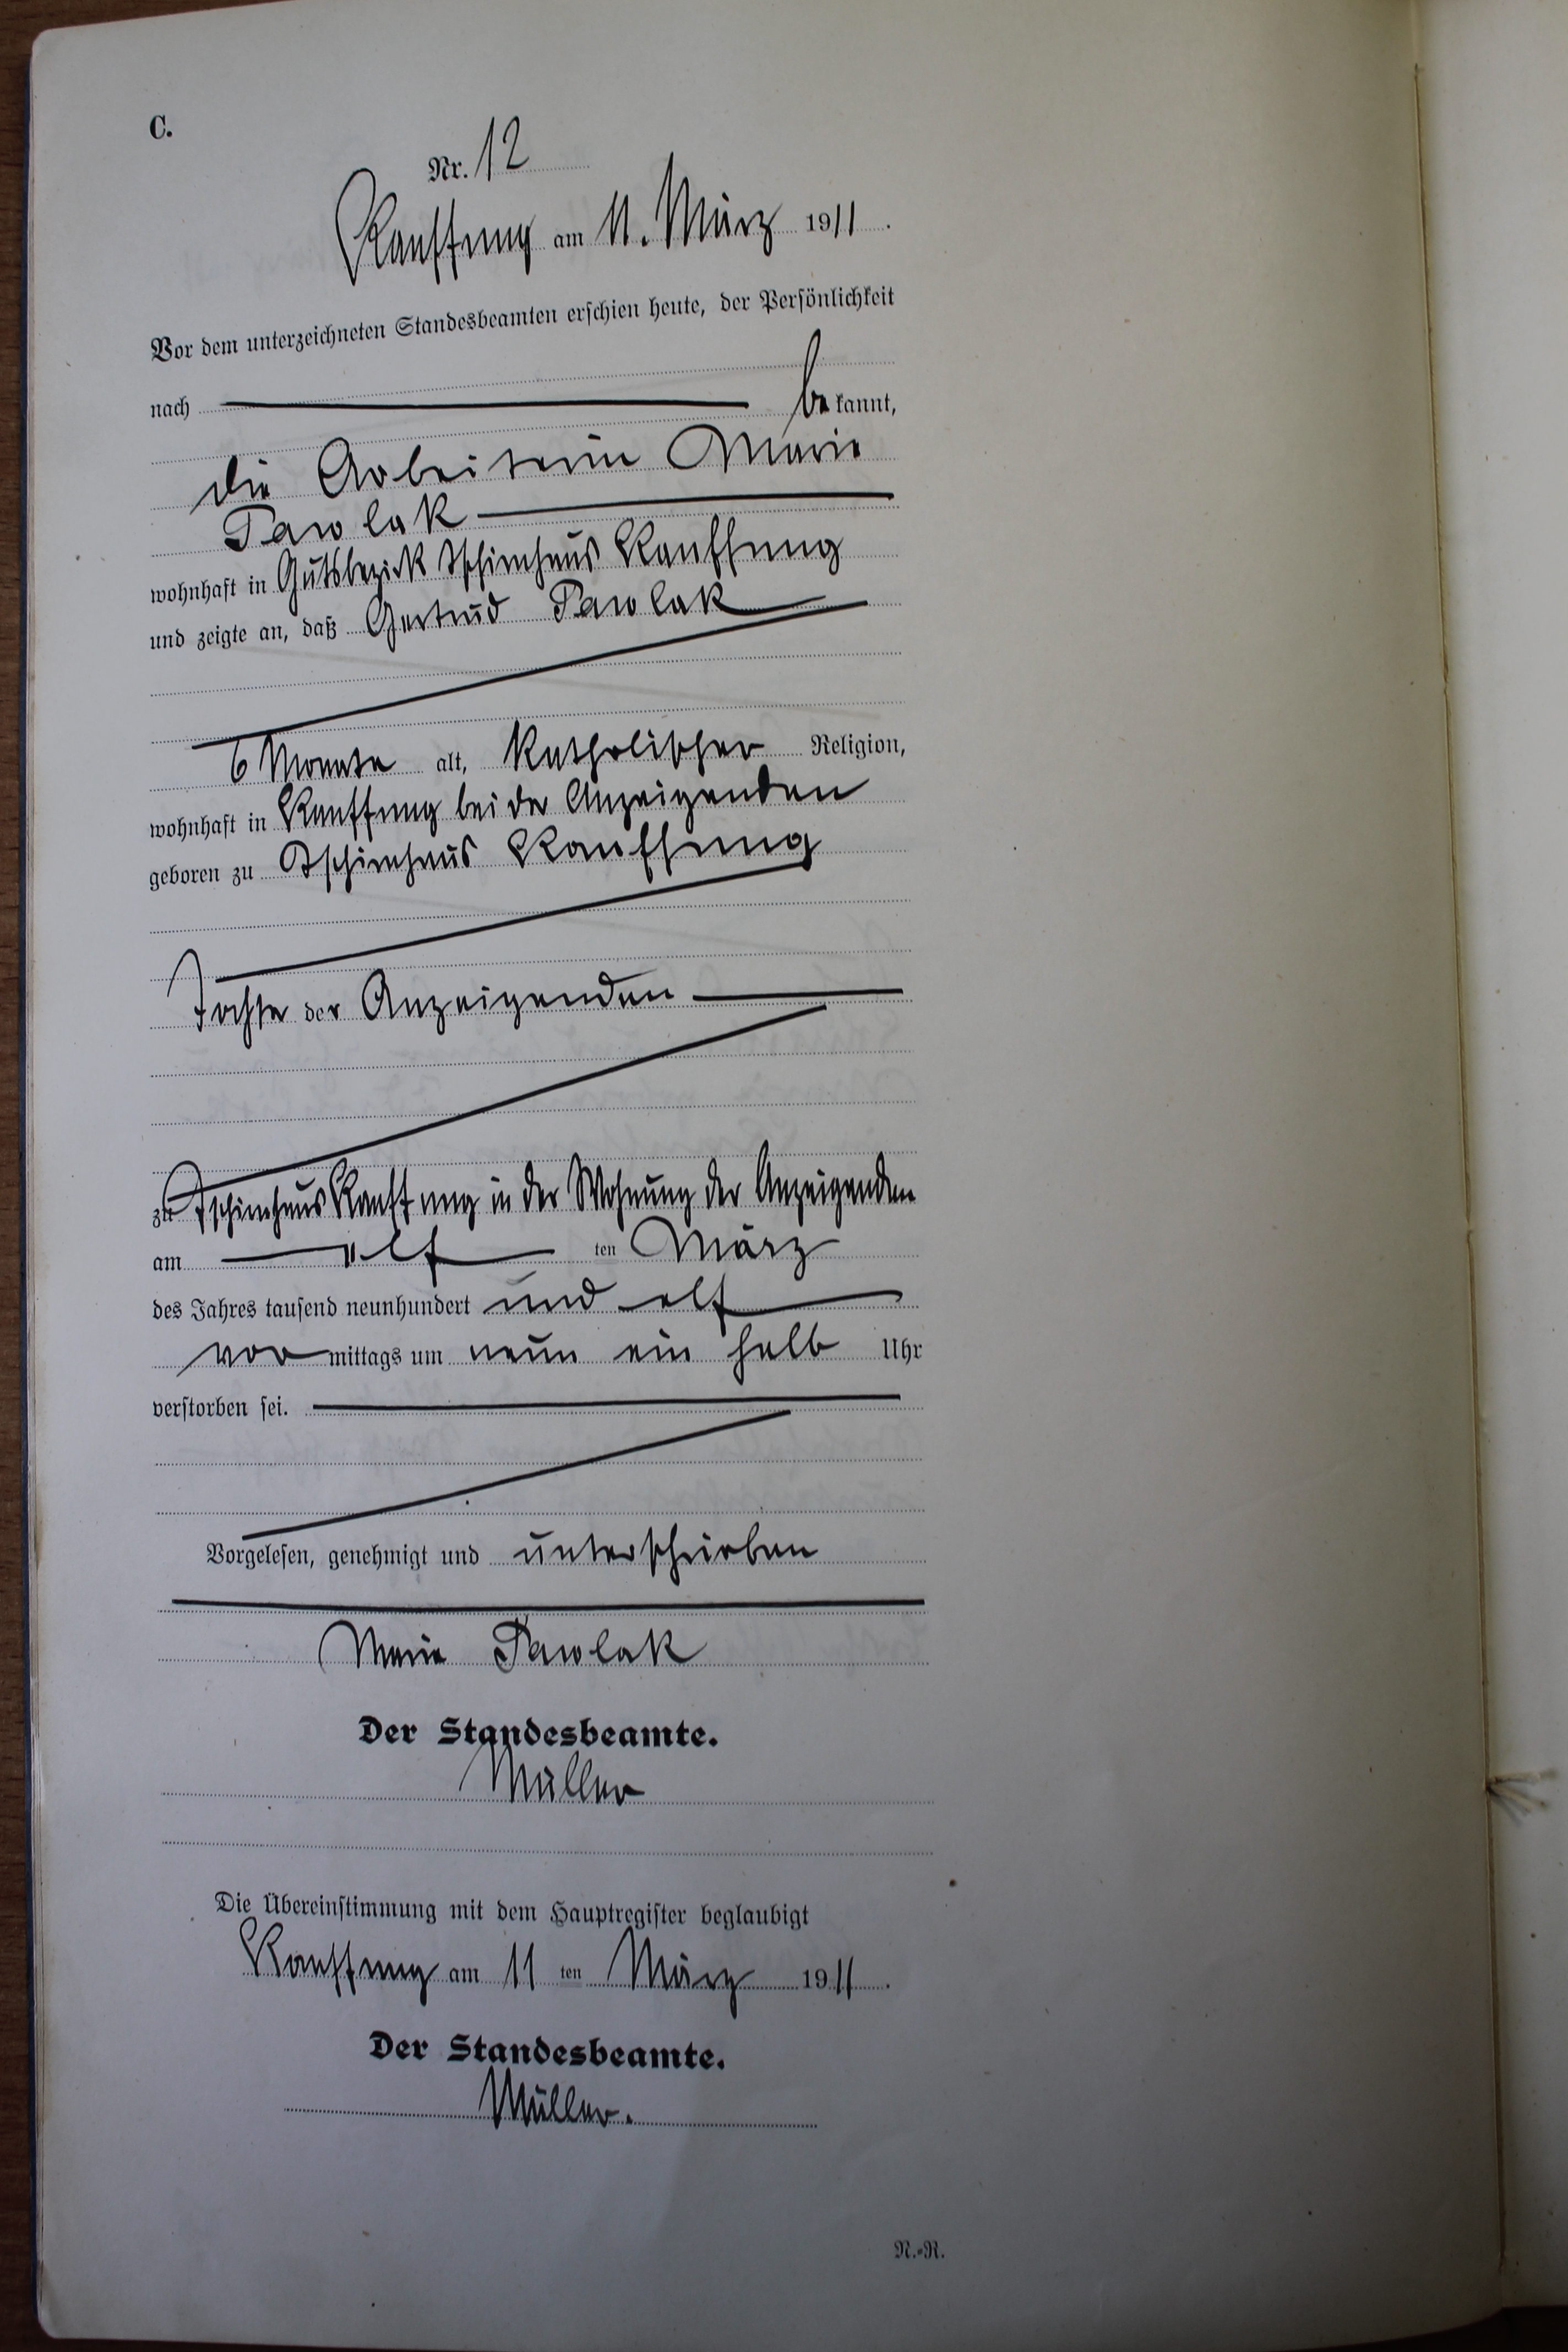 C.
Nr. 12
Kauffung am 11. März 1911.
Vor dem unterzeichneten Standesbeamten erschien heute, der Persönlichkeit
nach be kannt,
die Arbeiterin Marie
Pawlak
wohnhaft in Gutsbezirk Tschirnhaus Kauffung
und zeigte an, daß Gertrud Pawlak
6 Monate alt, katholischer Religion,
wohnhaft in Kauffung bei der Anzeigenden
geboren zu Tschirnhaus Kauffung
Tochter der Anzeigenden
zu Tschirnhaus Kauffung in der Wohnung der Anzeigenden
am elf ten März
des Jahres tausend neunhundert und elf
vor mittags um neun ein halb Uhr
verstorben sei.
Vorgelesen, genehmigt und unterschrieben
Marie Pawlak
Der Standesbeamte.
Müller
Die Übereinstimmung mit dem Hauptregister beglaubigt
Kauffung am 11 ten März 1911.
Der Standesbeamte.
Müller.
N.-R.